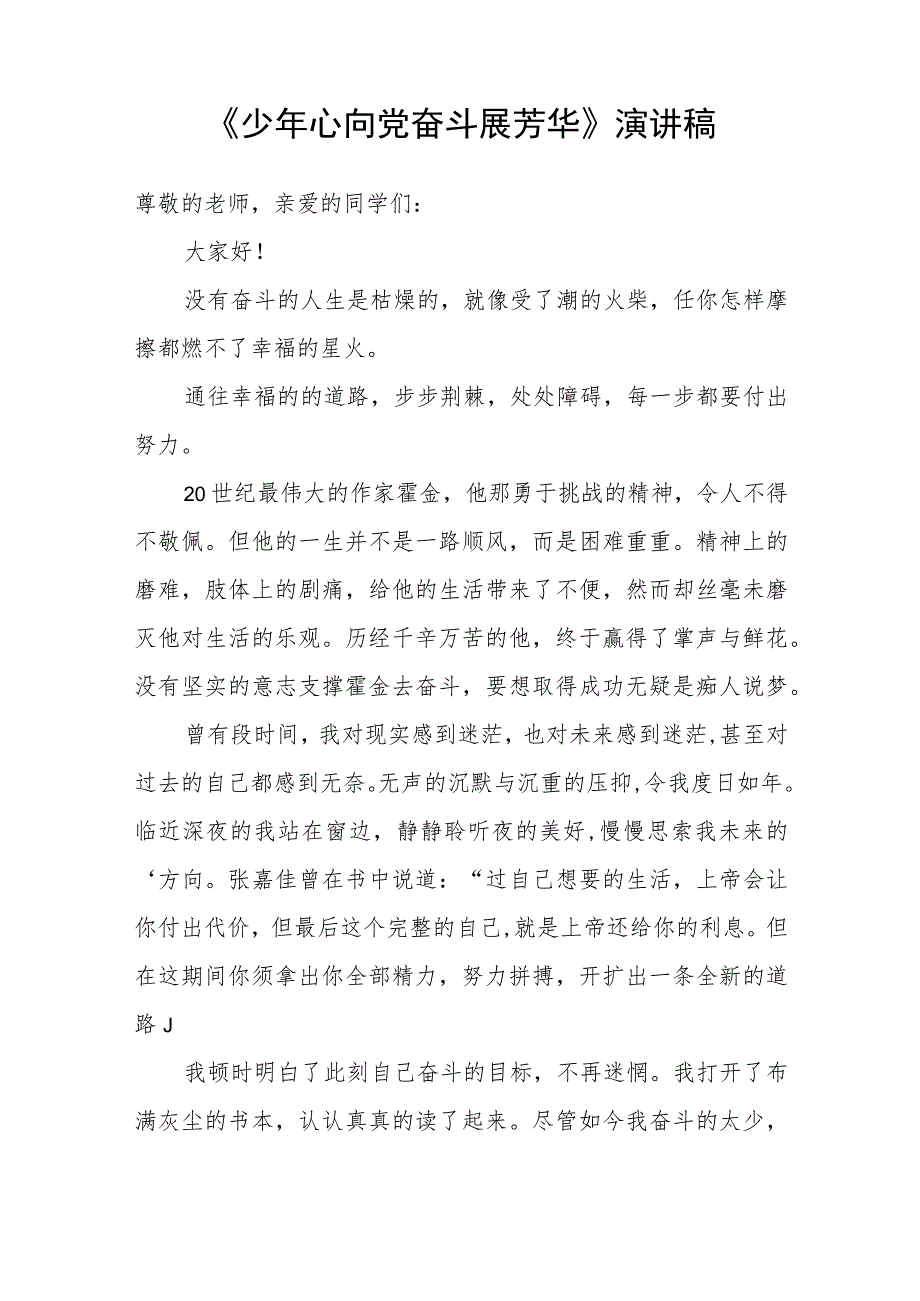 《少年心向党奋斗展芳华》演讲稿
尊敬的老师，亲爱的同学们：
大家好！
没有奋斗的人生是枯燥的，就像受了潮的火柴，任你怎样摩
擦都燃不了幸福的星火。
通往幸福的的道路，步步荆棘，处处障碍，每一步都要付出
努力。
20世纪最伟大的作家霍金，他那勇于挑战的精神，令人不得
不敬佩。但他的一生并不是一路顺风，而是困难重重。精神上的
磨难，肢体上的剧痛，给他的生活带来了不便，然而却丝毫未磨
灭他对生活的乐观。历经千辛万苦的他，终于赢得了掌声与鲜花。
没有坚实的意志支撑霍金去奋斗，要想取得成功无疑是痴人说梦。
曾有段时间，我对现实感到迷茫，也对未来感到迷茫,甚至对
过去的自己都感到无奈。无声的沉默与沉重的压抑,令我度日如年。
临近深夜的我站在窗边，静静聆听夜的美好,慢慢思索我未来的
‘方向。张嘉佳曾在书中说道：“过自己想要的生活，上帝会让
你付出代价，但最后这个完整的自己,就是上帝还给你的利息。但
在这期间你须拿出你全部精力，努力拼搏，开扩出一条全新的道
路J
我顿时明白了此刻自己奋斗的目标，不再迷惘。我打开了布
满灰尘的书本，认认真真的读了起来。尽管如今我奋斗的太少，